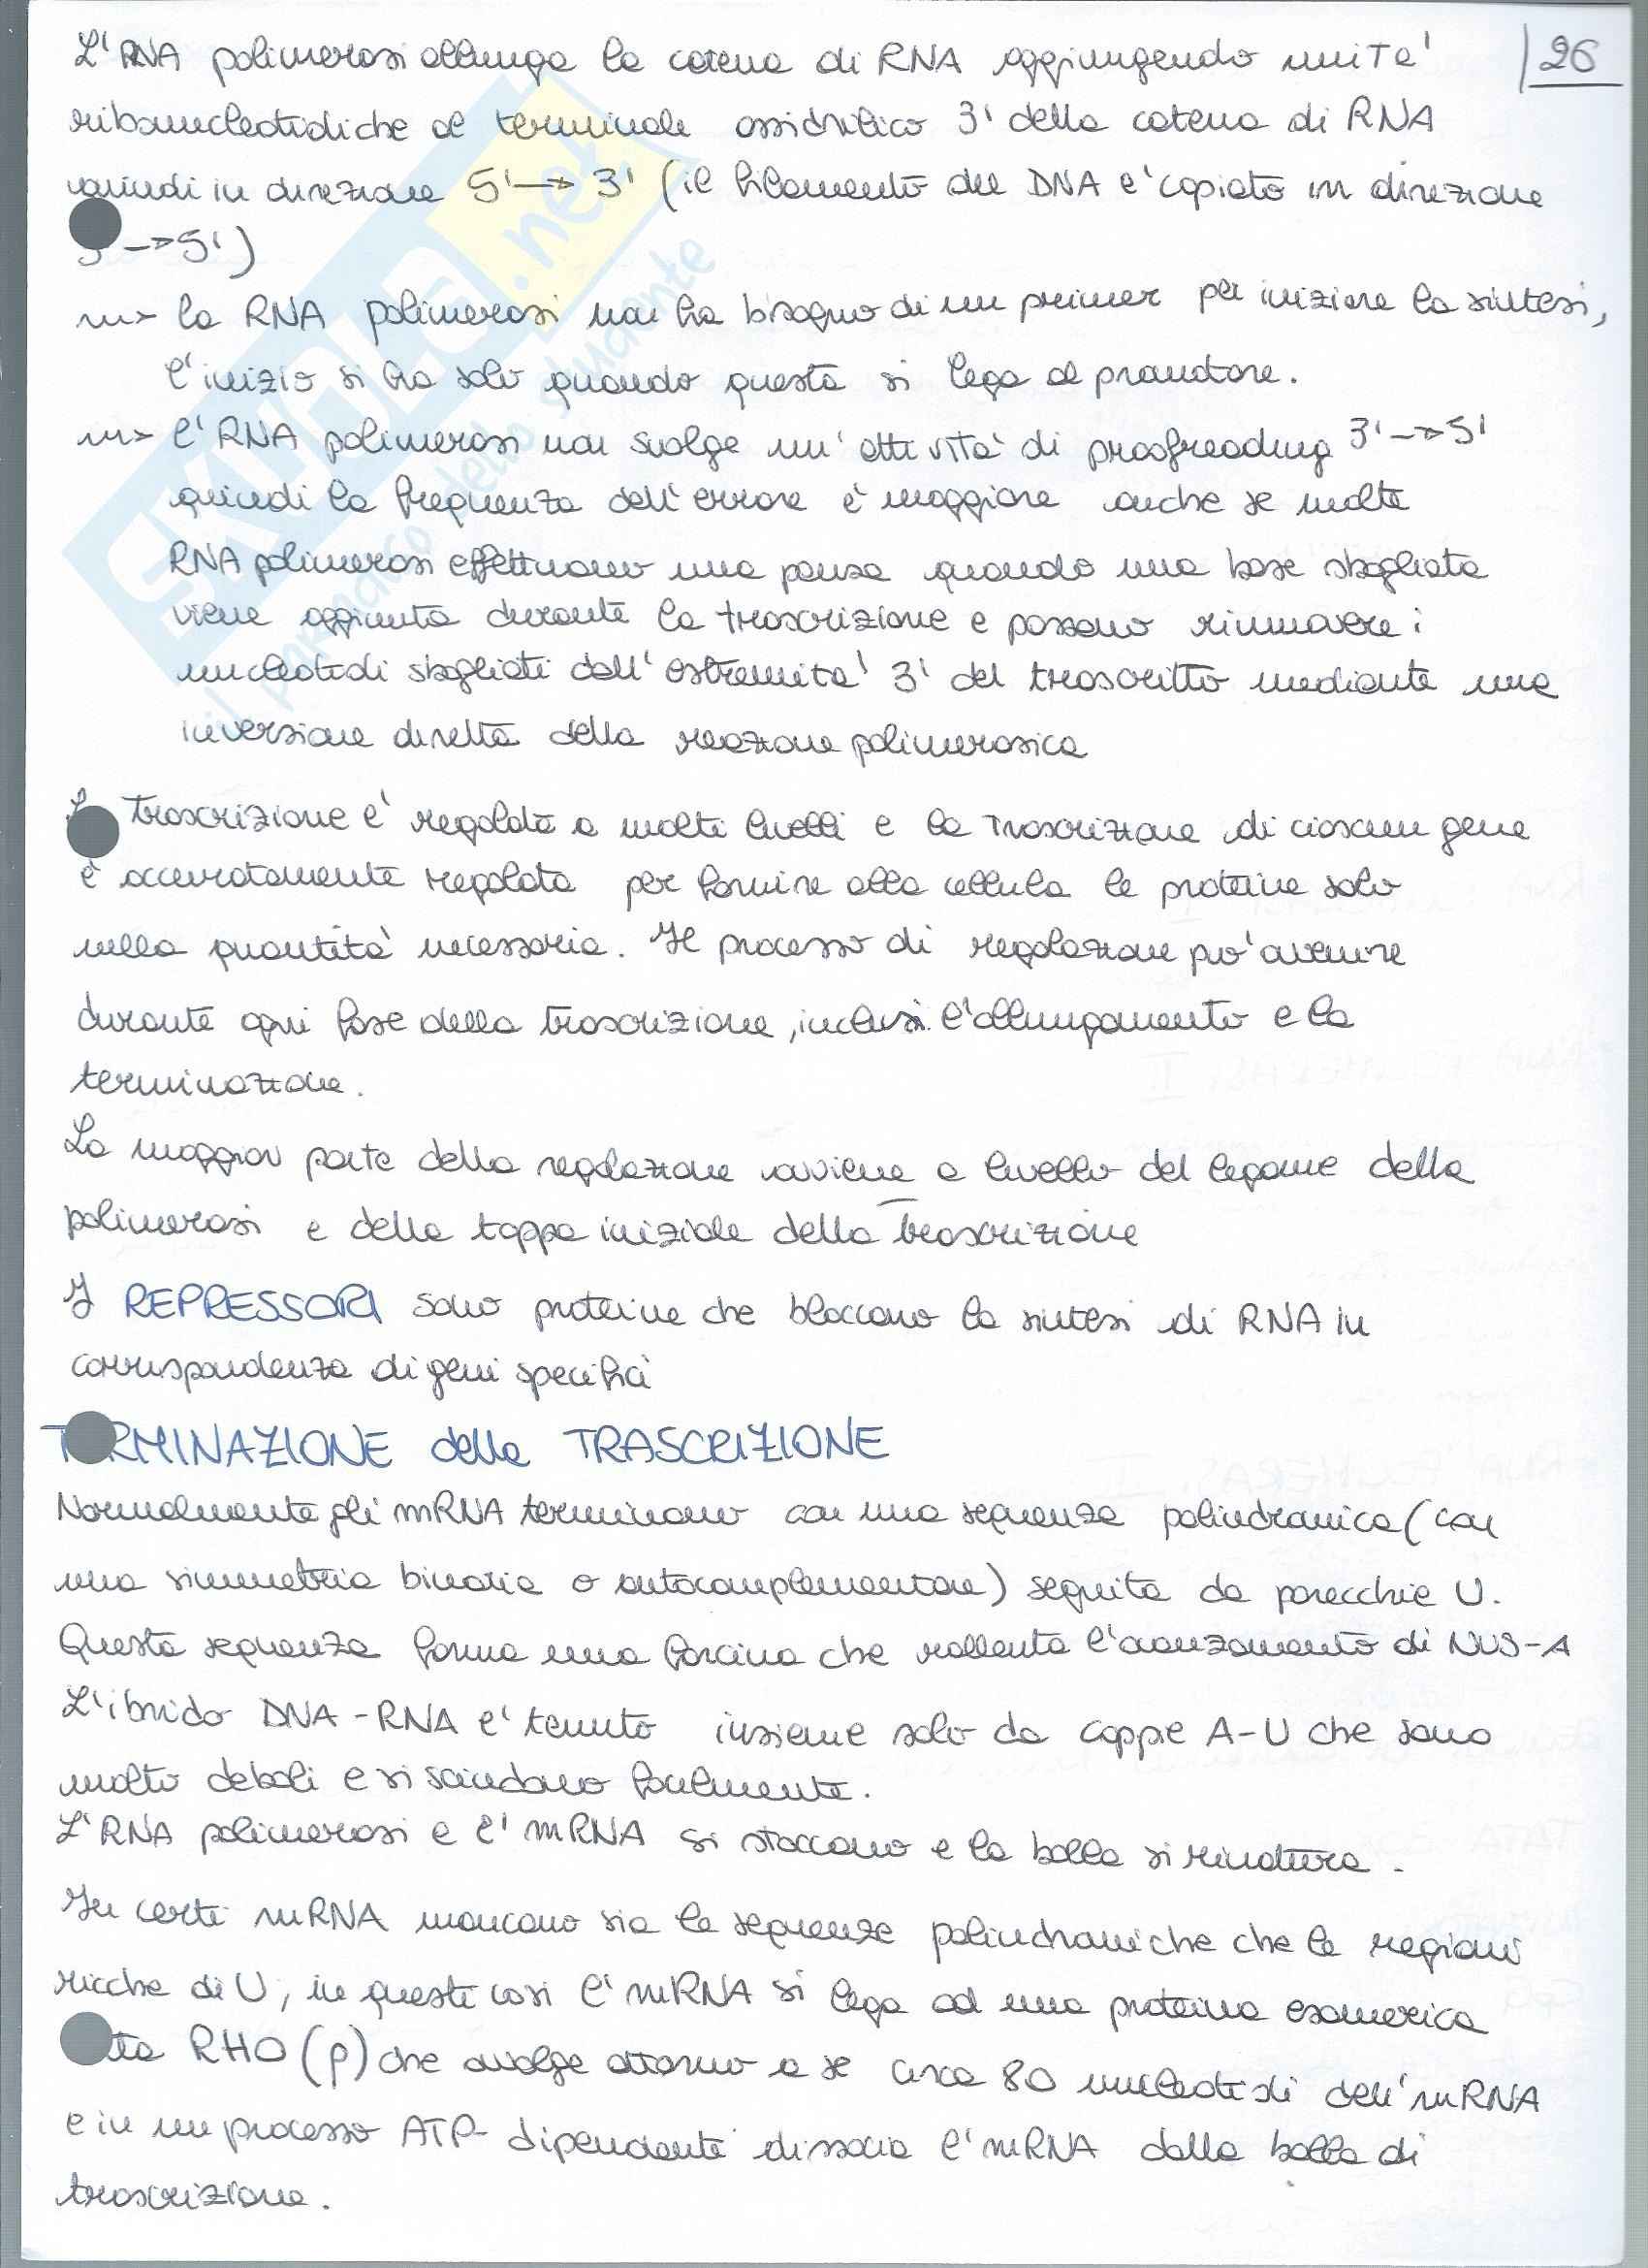 L'RNA polimerasi allunga la catena di RNA aggiungendo unita' |26
ribonucleotidiche al terminale ossidrilico 3' della catena di RNA
quindi in direzione 5' → 3' (il filamento del DNA e' copiato in direzione
→ 5')
~> la RNA polimerasi non ha bisogno di un primer per iniziare la sintesi,
l'inizio si ha solo quando questa si lega al promotore.
~> l'RNA polimerasi non svolge un' attivita' di proofreading 3' → 5'
quindi la frequenza dell'errore e' maggiore anche se molte
RNA polimerasi effettuano una pausa quando una base sbagliata
viene aggiunta durante la trascrizione e possono rimuovere i
nucleotidi sbagliati dall'estremita' 3' del trascritto mediante una
inversione diretta della reazione polimerasica
trascrizione e' regolata a molti livelli e la trascrizione di ciascun gene
è accuratamente regolata per fornire alla cellula le proteine solo
nella quantità necessaria. Il processo di regolazione puo' avvenire
durante ogni fase della trascrizione, inclusi l'allungamento e la
terminazione.
La maggior parte della regolazione avviene a livello del legame della
polimerasi e della tappa iniziale della trascrizione
I REPRESSORI sono proteine che bloccano la sintesi di RNA in
corrispondenza di geni specifici
TERMINAZIONE della TRASCRIZIONE
Normalmente gli mRNA terminano con una sequenza palindromica (con
una simmetria binaria o autocomplementare) seguita da parecchie U.
Questa sequenza forma una forcina che rallenta l'avanzamento di NUS-A
L'ibrido DNA-RNA e' tenuto insieme solo da coppie A-U che sono
molto deboli e si scindono facilmente.
L'RNA polimerasi e l'mRNA si staccano e la bolla si rinatura.
In certi mRNA mancano sia le sequenze palindromiche che le regioni
ricche di U, in questi casi l'mRNA si lega ad una proteina esamerica
detta RHO (ρ) che avvolge attorno a se circa 80 nucleotidi dell'mRNA
e in un processo ATP-dipendente dissocia l'mRNA dalla bolla di
trascrizione.
SKUOLA.net
il paradiso dello studente